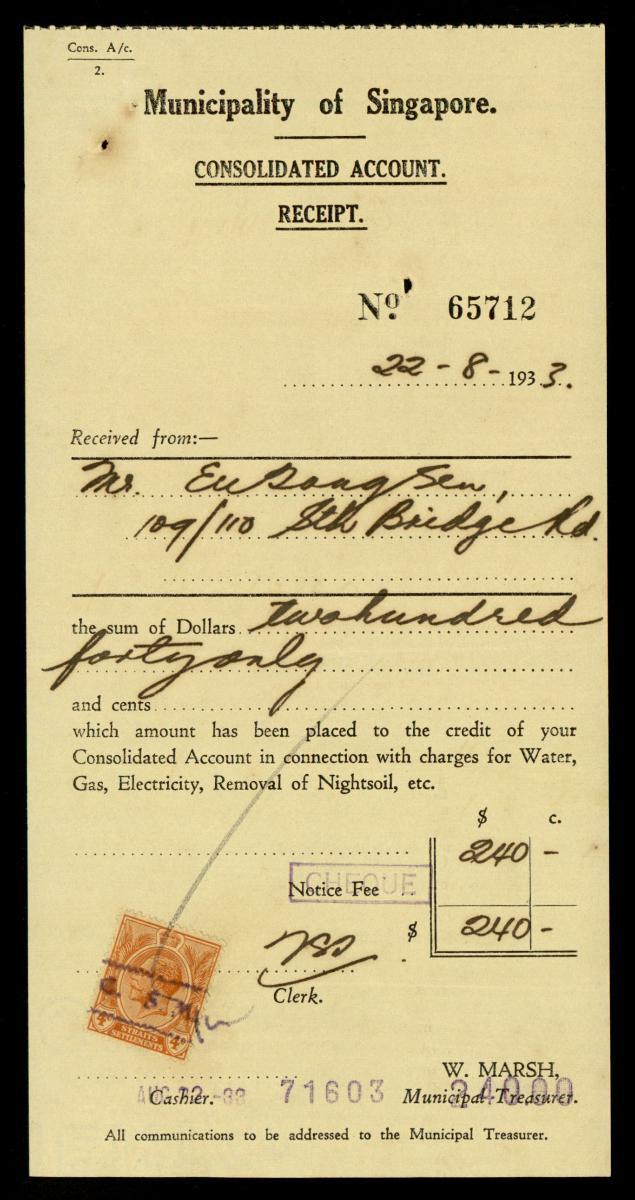 Cons. A/c.
2.
Municipality of Singapore.
CONSOLIDATED ACCOUNT.
RECEIPT.
No. 65712
22-8-1933.
Received from:—
Mr. Eu Tong Sen,
109/110 Sth Bridge Rd.
the sum of Dollars two hundred
forty only
and cents
which amount has been placed to the credit of your
Consolidated Account in connection with charges for Water,
Gas, Electricity, Removal of Nightsoil, etc.
$ c.
240 -
CHEQUE
Notice Fee
$ 240 -
Clerk.
STRAITS
SETTLEMENTS
4c 4c
W. MARSH,
AUG 22 -33 71603 240.00
Cashier. Municipal Treasurer.
All communications to be addressed to the Municipal Treasurer.